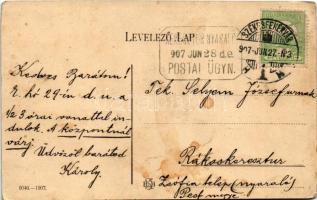 LEVELEZŐ LAP
907 JUN 28 d.e.
POSTAI ÜGYN.
SZÉKESFEHÉRVÁR
907 JUN 27
Kedves Barátom!
E. hó 29-én d. u. a
1/2 3 órai vonattal in-
dulok. A központnál
várj. Üdvözöl barátod
Károly.
Tek. Selyem József urnak
Rákoskeresztur
Zsófia telep (nyaraló)
Pest megye
1907.